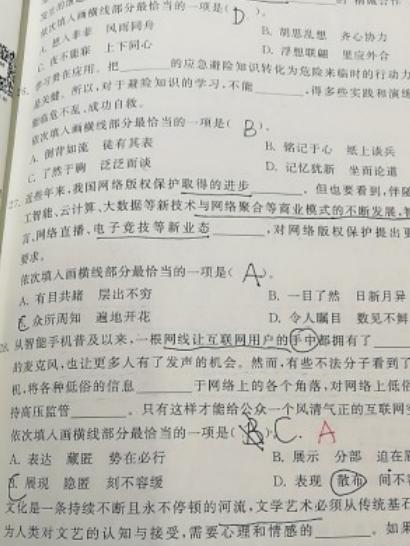 依次填入画横线部分最恰当的一项是( D )。
A. 想入非非 风雨同舟 B. 胡思乱想 齐心协力
C. 夜不能寐 上下同心 D. 浮想联翩 里应外合
学习贵在应用。把______的应急避险知识转化为危险来临时的行动力
是关键。所以,对于避险知识的学习,不能______,得多些实践和演练
能临危不乱、成功自救。
依次填入画横线部分最恰当的一项是( B )。
A. 倒背如流 徒有其表 B. 铭记于心 纸上谈兵
C. 了然于胸 泛泛而谈 D. 记忆犹新 坐而论道
27. 近些年来,我国网络版权保护取得的进步______,但也要看到,伴随
工智能、云计算、大数据等新技术与网络聚合等商业模式的不断发展,
言、网络直播、电子竞技等新业态______,对网络版权保护提出更
要求。
依次填入画横线部分最恰当的一项是( A )。
A. 有目共睹 层出不穷 B. 一目了然 日新月异
C. 众所周知 遍地开花 D. 令人瞩目 数见不鲜
28. 从智能手机普及以来,一根网线让互联网用户的手中都拥有了
的麦克风,也让更多人有了发声的机会。然而,有些不法分子看到了
机,将各种低俗的信息______于网络上的各个角落,对网络上低俗
待高压监管______。只有这样才能给公众一个风清气正的互联网
依次填入画横线部分最恰当的一项是( B C. A
A. 表达 藏匿 势在必行 B. 展示 分部 迫在
C. 展现 隐匿 刻不容缓 D. 表现 散布 间不
文化是一条持续不断且永不停顿的河流,文学艺术必须从传统基石
为人类对文艺的认知与接受,需要心理和情感的______。如果